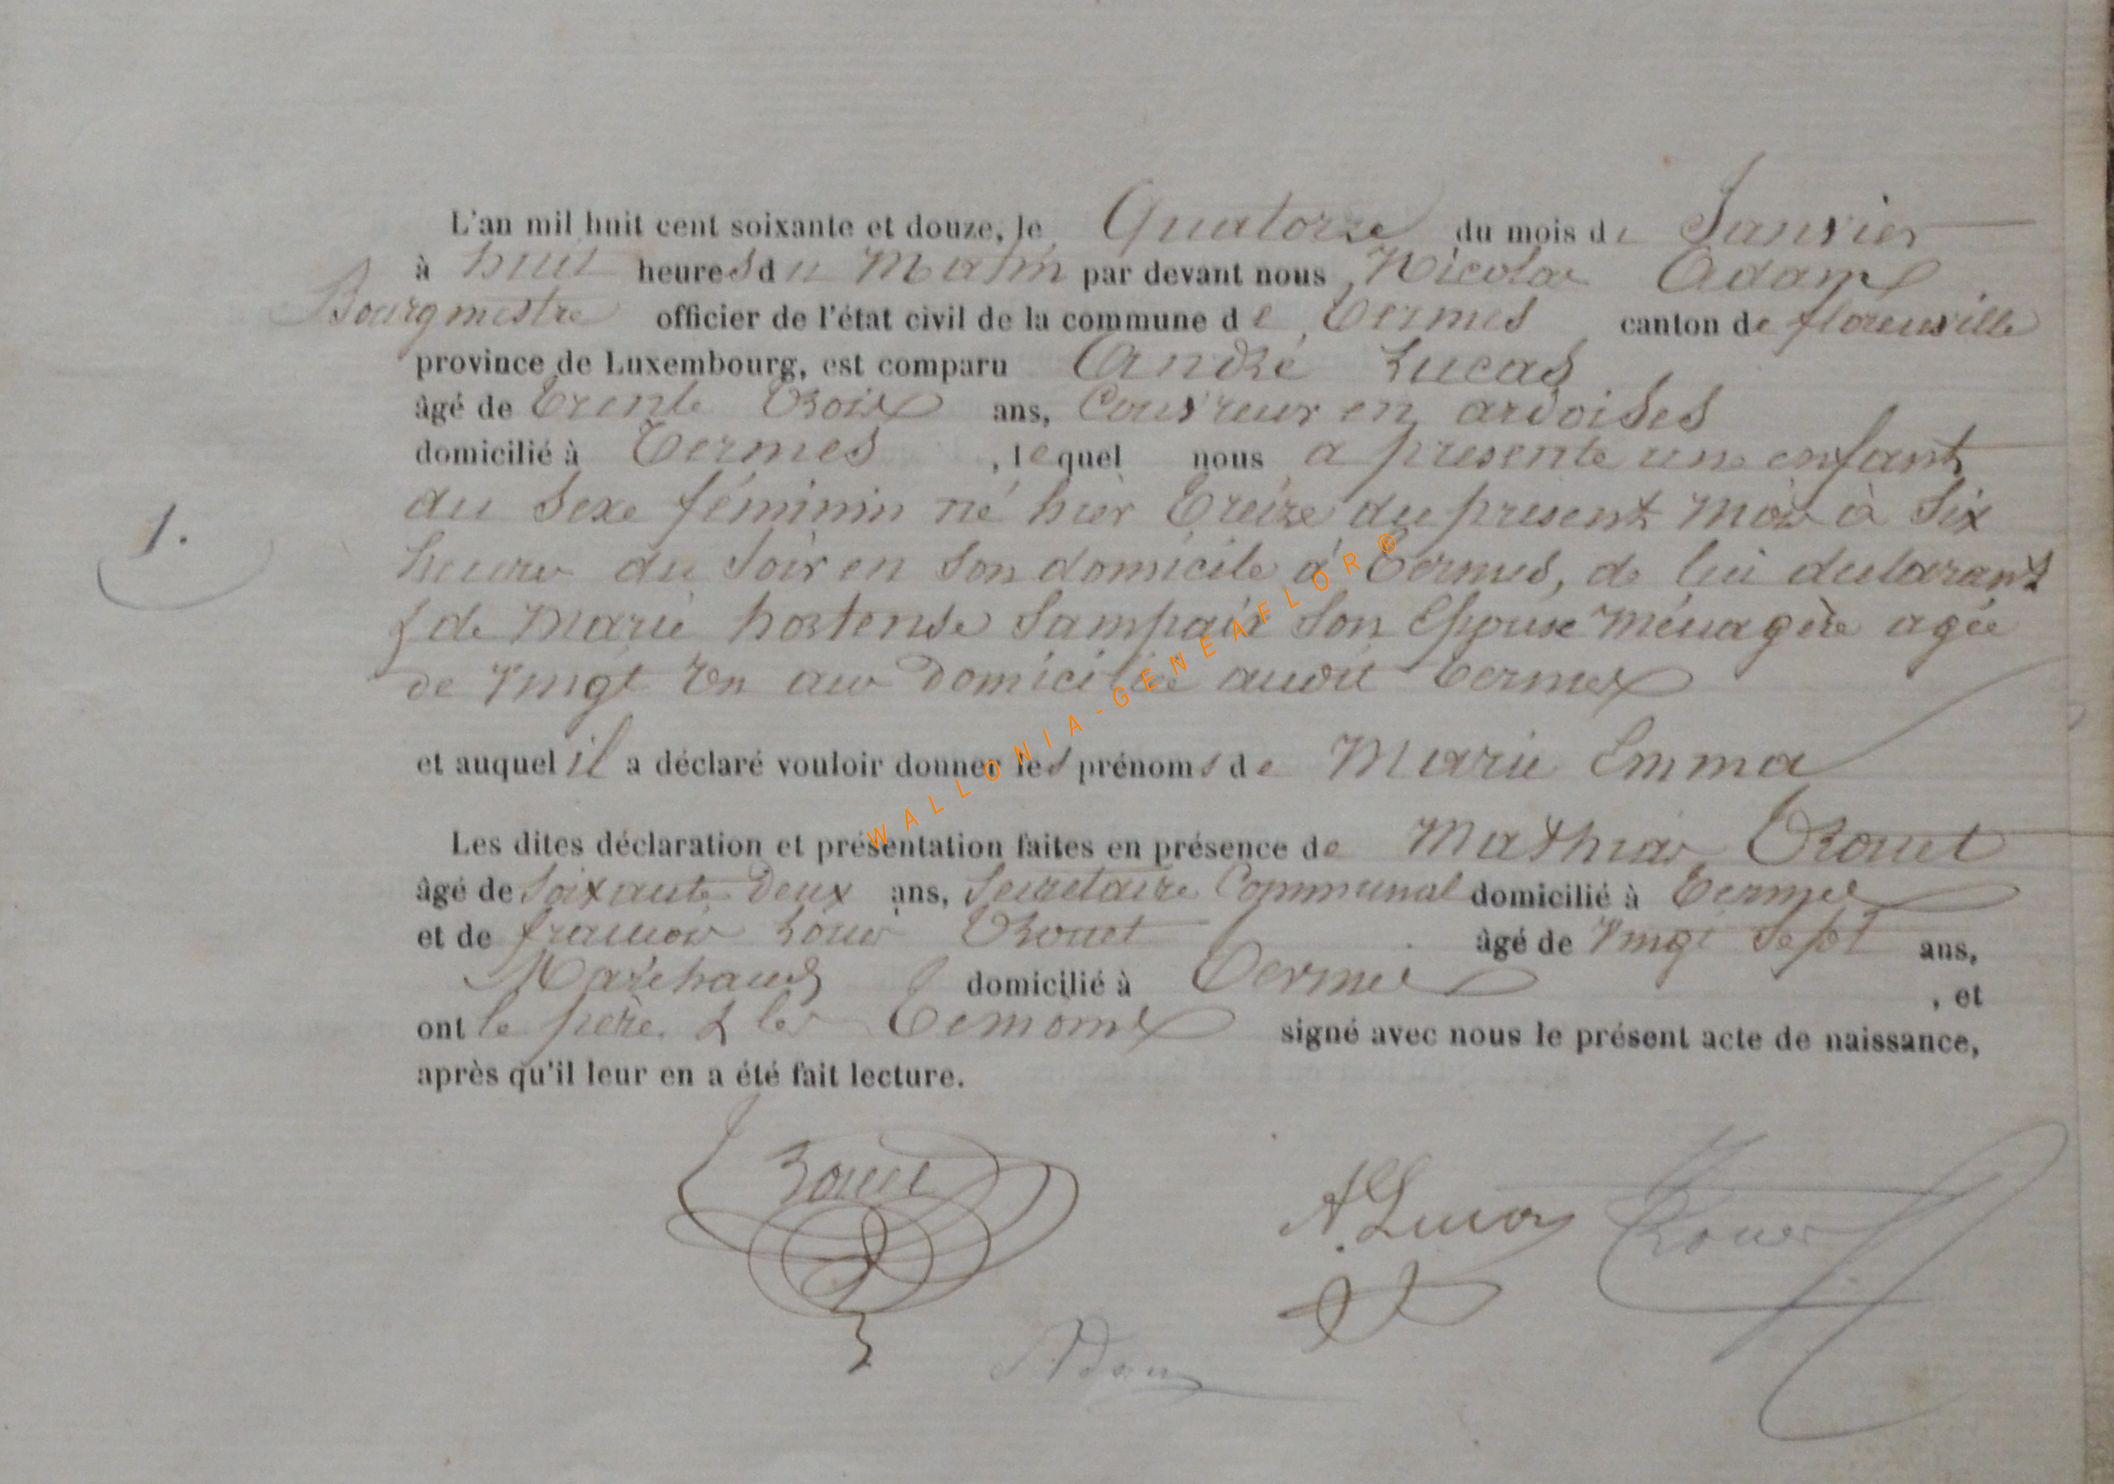 L'an mil huit cent soixante et douze, le Quatorze du mois de Janvier
à huit heures du Matin par devant nous Nicolas Adam
Bourgmestre officier de l'état civil de la commune de Termes canton de florenville
province de Luxembourg, est comparu André Lucas
âgé de Trente Trois ans, Couvreur en ardoises
domicilié à Termes , lequel nous a presente un enfant
du sexe féminin né hier Treize du present mois à six
heures du soir en son domicile à Termes, de lui declarant
& de Marie hortense Sampaix son Epouse Ménagère agée
de Vingt un ans Domiciliée audit Termes
et auquel il a déclaré vouloir donner les prénoms de Marie Emma
Les dites déclaration et présentation faites en présence de Mathias Trouet
âgé de soixante Deux ans, Secretaire Communal domicilié à Termes
1.
et de francois Louis Trouet âgé de Vingt Sept ans,
Marchand domicilié à Termes , et
ont le père & les Temoins signé avec nous le présent acte de naissance,
après qu'il leur en a été fait lecture.
A. Lucas
Adam
WALLONIA-GENEAFLOR®